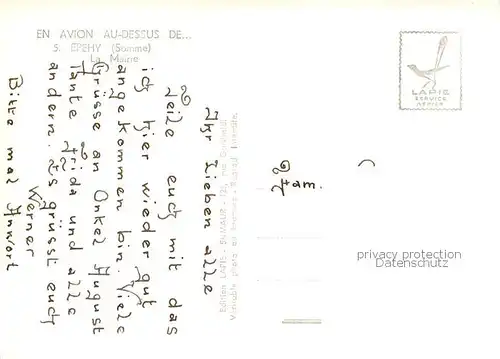 EN AVION AU-DESSUS DE...
5. EPEHY (Somme)
La Mairie
LAPIE
SERVICE
AERIEN
Ihr Lieben alle
Teile euch mit das
ich hier wieder gut
angekommen bin. Viele
Grüsse an Onkel August
Tante Frida und alle
andern. Es grüsst euch
Werner
Bitte mal Antwort
Edition LAPIE - St-MAUR -
Véritable photo au bromure - Reprod. interdite
Fam.
privacy protection
Datenschutz